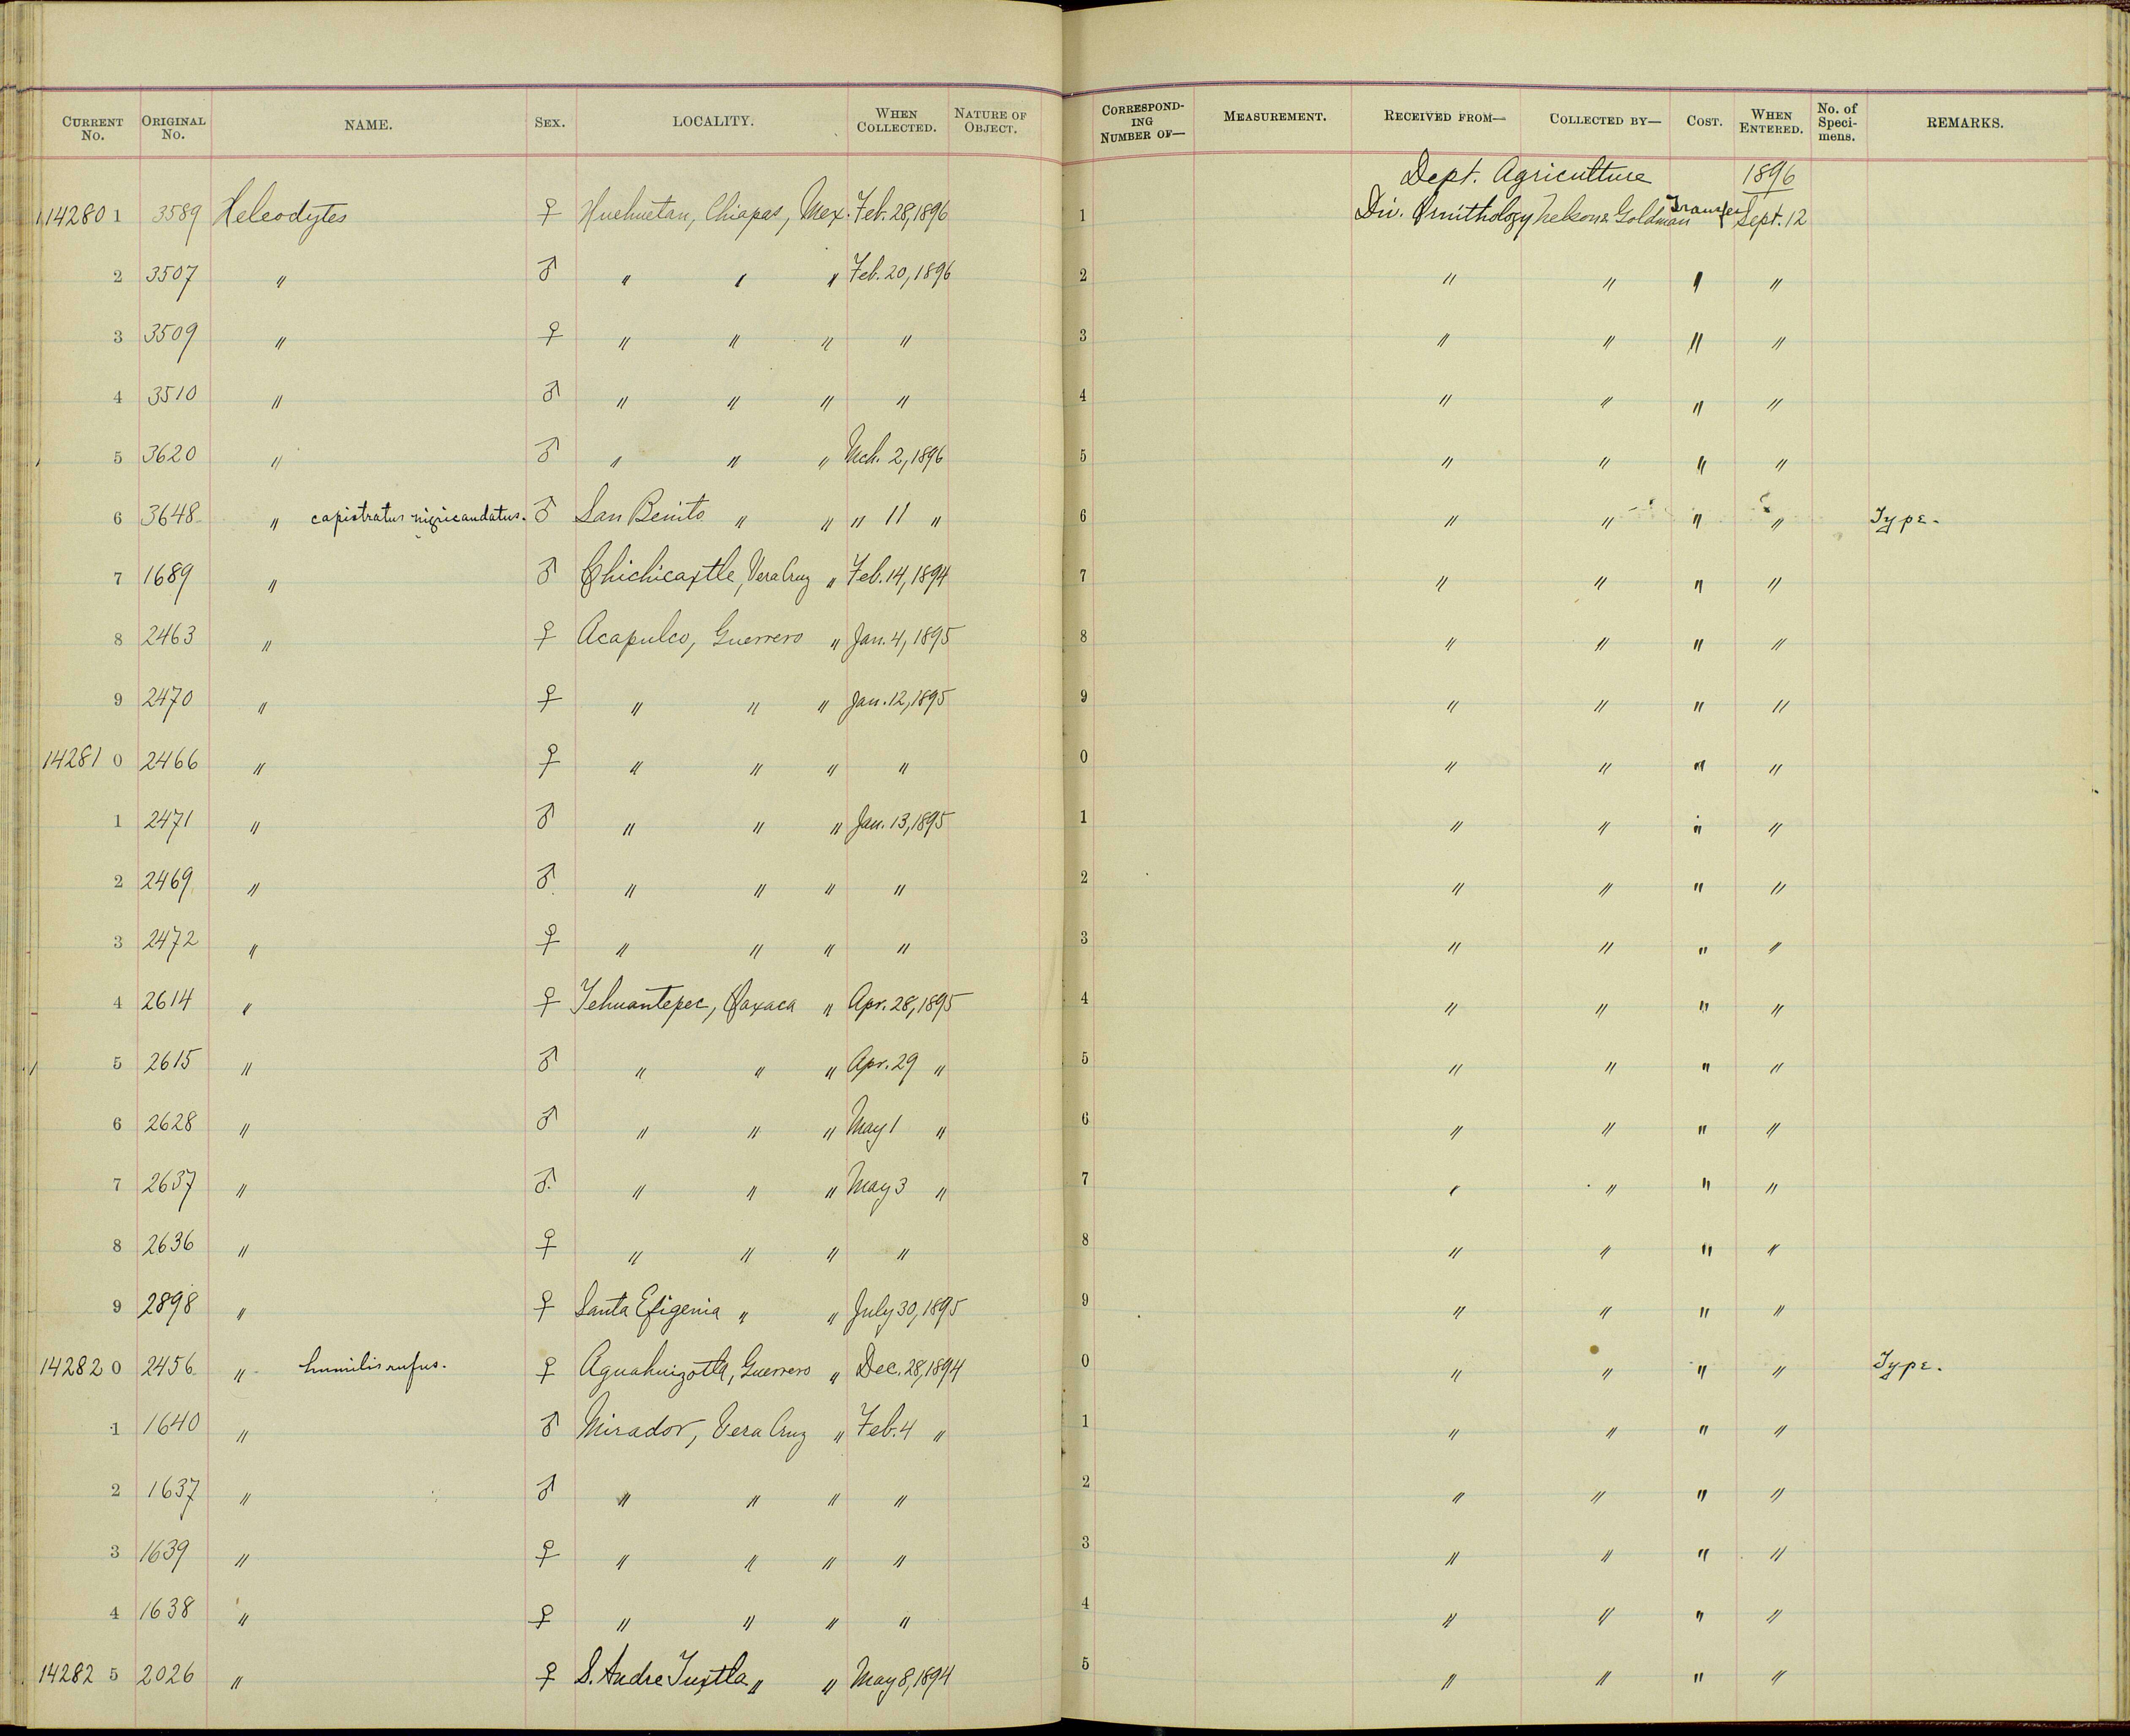 CURRENT No. ORIGINAL No. NAME. SEX. LOCALITY. WHEN COLLECTED. NATURE OF OBJECT. CORRESPONDING NUMBER OF— MEASUREMENT. RECEIVED FROM— COLLECTED BY— COST. WHEN ENTERED. No. of Specimens. REMARKS.
Dept. Agriculture 1896
142801 3589 Heleodytes ♀ Huehuetan, Chiapas, Mex. Feb. 28, 1896 1 Div. Ornithology Nelson & Goldman Transfer Sept. 12
2 3507 " ♂ " " " Feb. 20, 1896 2 " " " "
3 3509 " ♀ " " " " 3 " " " "
4 3510 " ♂ " " " " 4 " " " "
5 3620 " ♂ " " " Mch. 2, 1896 5 " " " "
6 3648 " capistratus nigricaudatus. ♂ San Benito " " " 11 " 6 " " " " Type.
7 1689 " ♂ Chichicaxtle, Vera Cruz " Feb. 14, 1894 7 " " " "
8 2463 " ♀ Acapulco, Guerrero " Jan. 4, 1895 8 " " " "
9 2470 " ♀ " " " Jan. 12, 1895 9 " " " "
142810 2466 " ♀ " " " " 0 " " " "
1 2471 " ♂ " " " Jan. 13, 1895 1 " " " "
2 2469 " ♂ " " " " 2 " " " "
3 2472 " ♀ " " " " 3 " " " "
4 2614 " ♀ Tehuantepec, Oaxaca " Apr. 28, 1895 4 " " " "
5 2615 " ♂ " " " Apr. 29 " 5 " " " "
6 2628 " ♂ " " " May 1 " 6 " " " "
7 2637 " ♂ " " " May 3 " 7 " " " "
8 2636 " ♀ " " " " 8 " " " "
9 2898 " ♀ Santa Efigenia " " July 30, 1895 9 " " " "
142820 2456 " humilis rufus. ♀ Aguahuizotla, Guerrero " Dec. 28, 1894 0 " " " " Type.
1 1640 " ♂ Mirador, Vera Cruz " Feb. 4 " 1 " " " "
2 1637 " ♂ " " " " 2 " " " "
3 1639 " ♀ " " " " 3 " " " "
4 1638 " ♀ " " " " 4 " " " "
142825 2026 " ♀ S. Andre Tuxtla " " May 8, 1894 5 " " " "